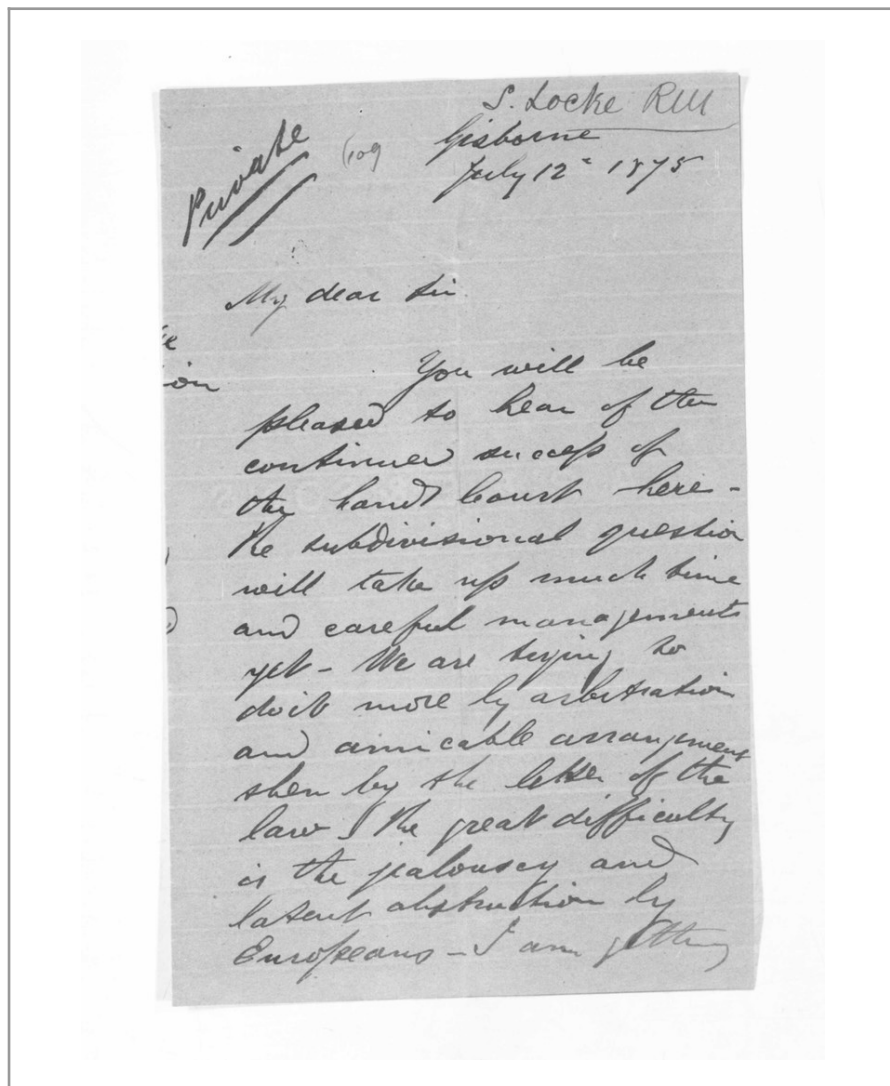 S. Locke RM
Private
Gisborne
July 12" 1875
My dear Sir
You will be
pleased to hear of the
continued success of
the Land Court here -
the subdivisional question
will take up much time
and careful management
yet - We are trying to
do it more by arbitration
and amicable arrangement
then by the letter of the
law. The great difficulty
is the jealousey and
latent obstruction by
Europeans - I am getting